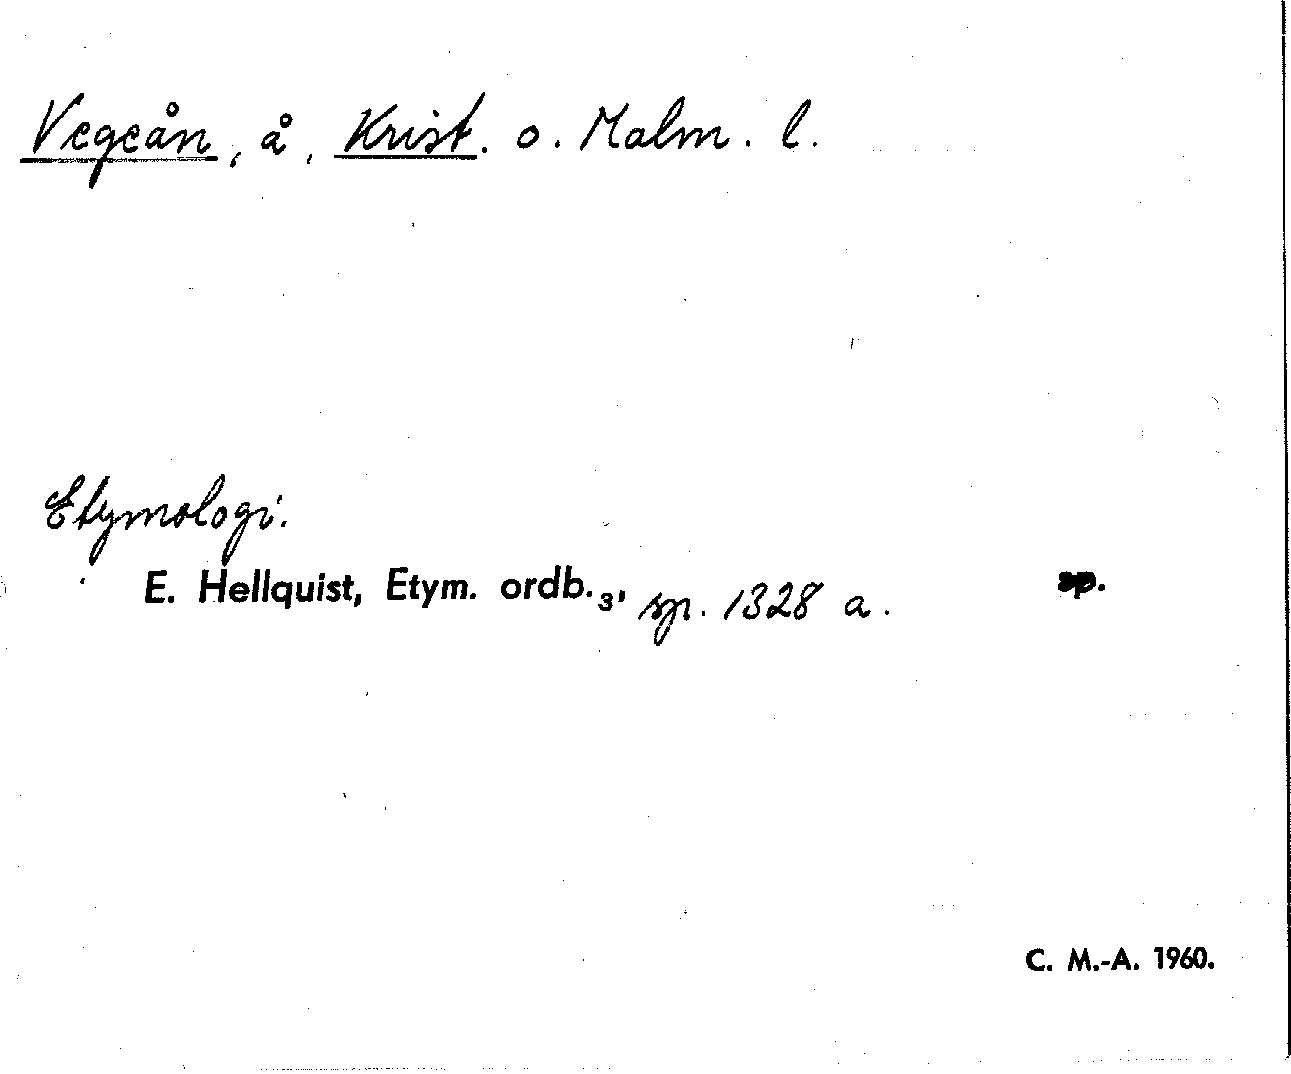 Vegeån, å, Krist. o. Malm. l.
Etymologi.
E. Hellquist, Etym. ordb.₃, sp. 1328 a. sp.
C. M.-A. 1960.